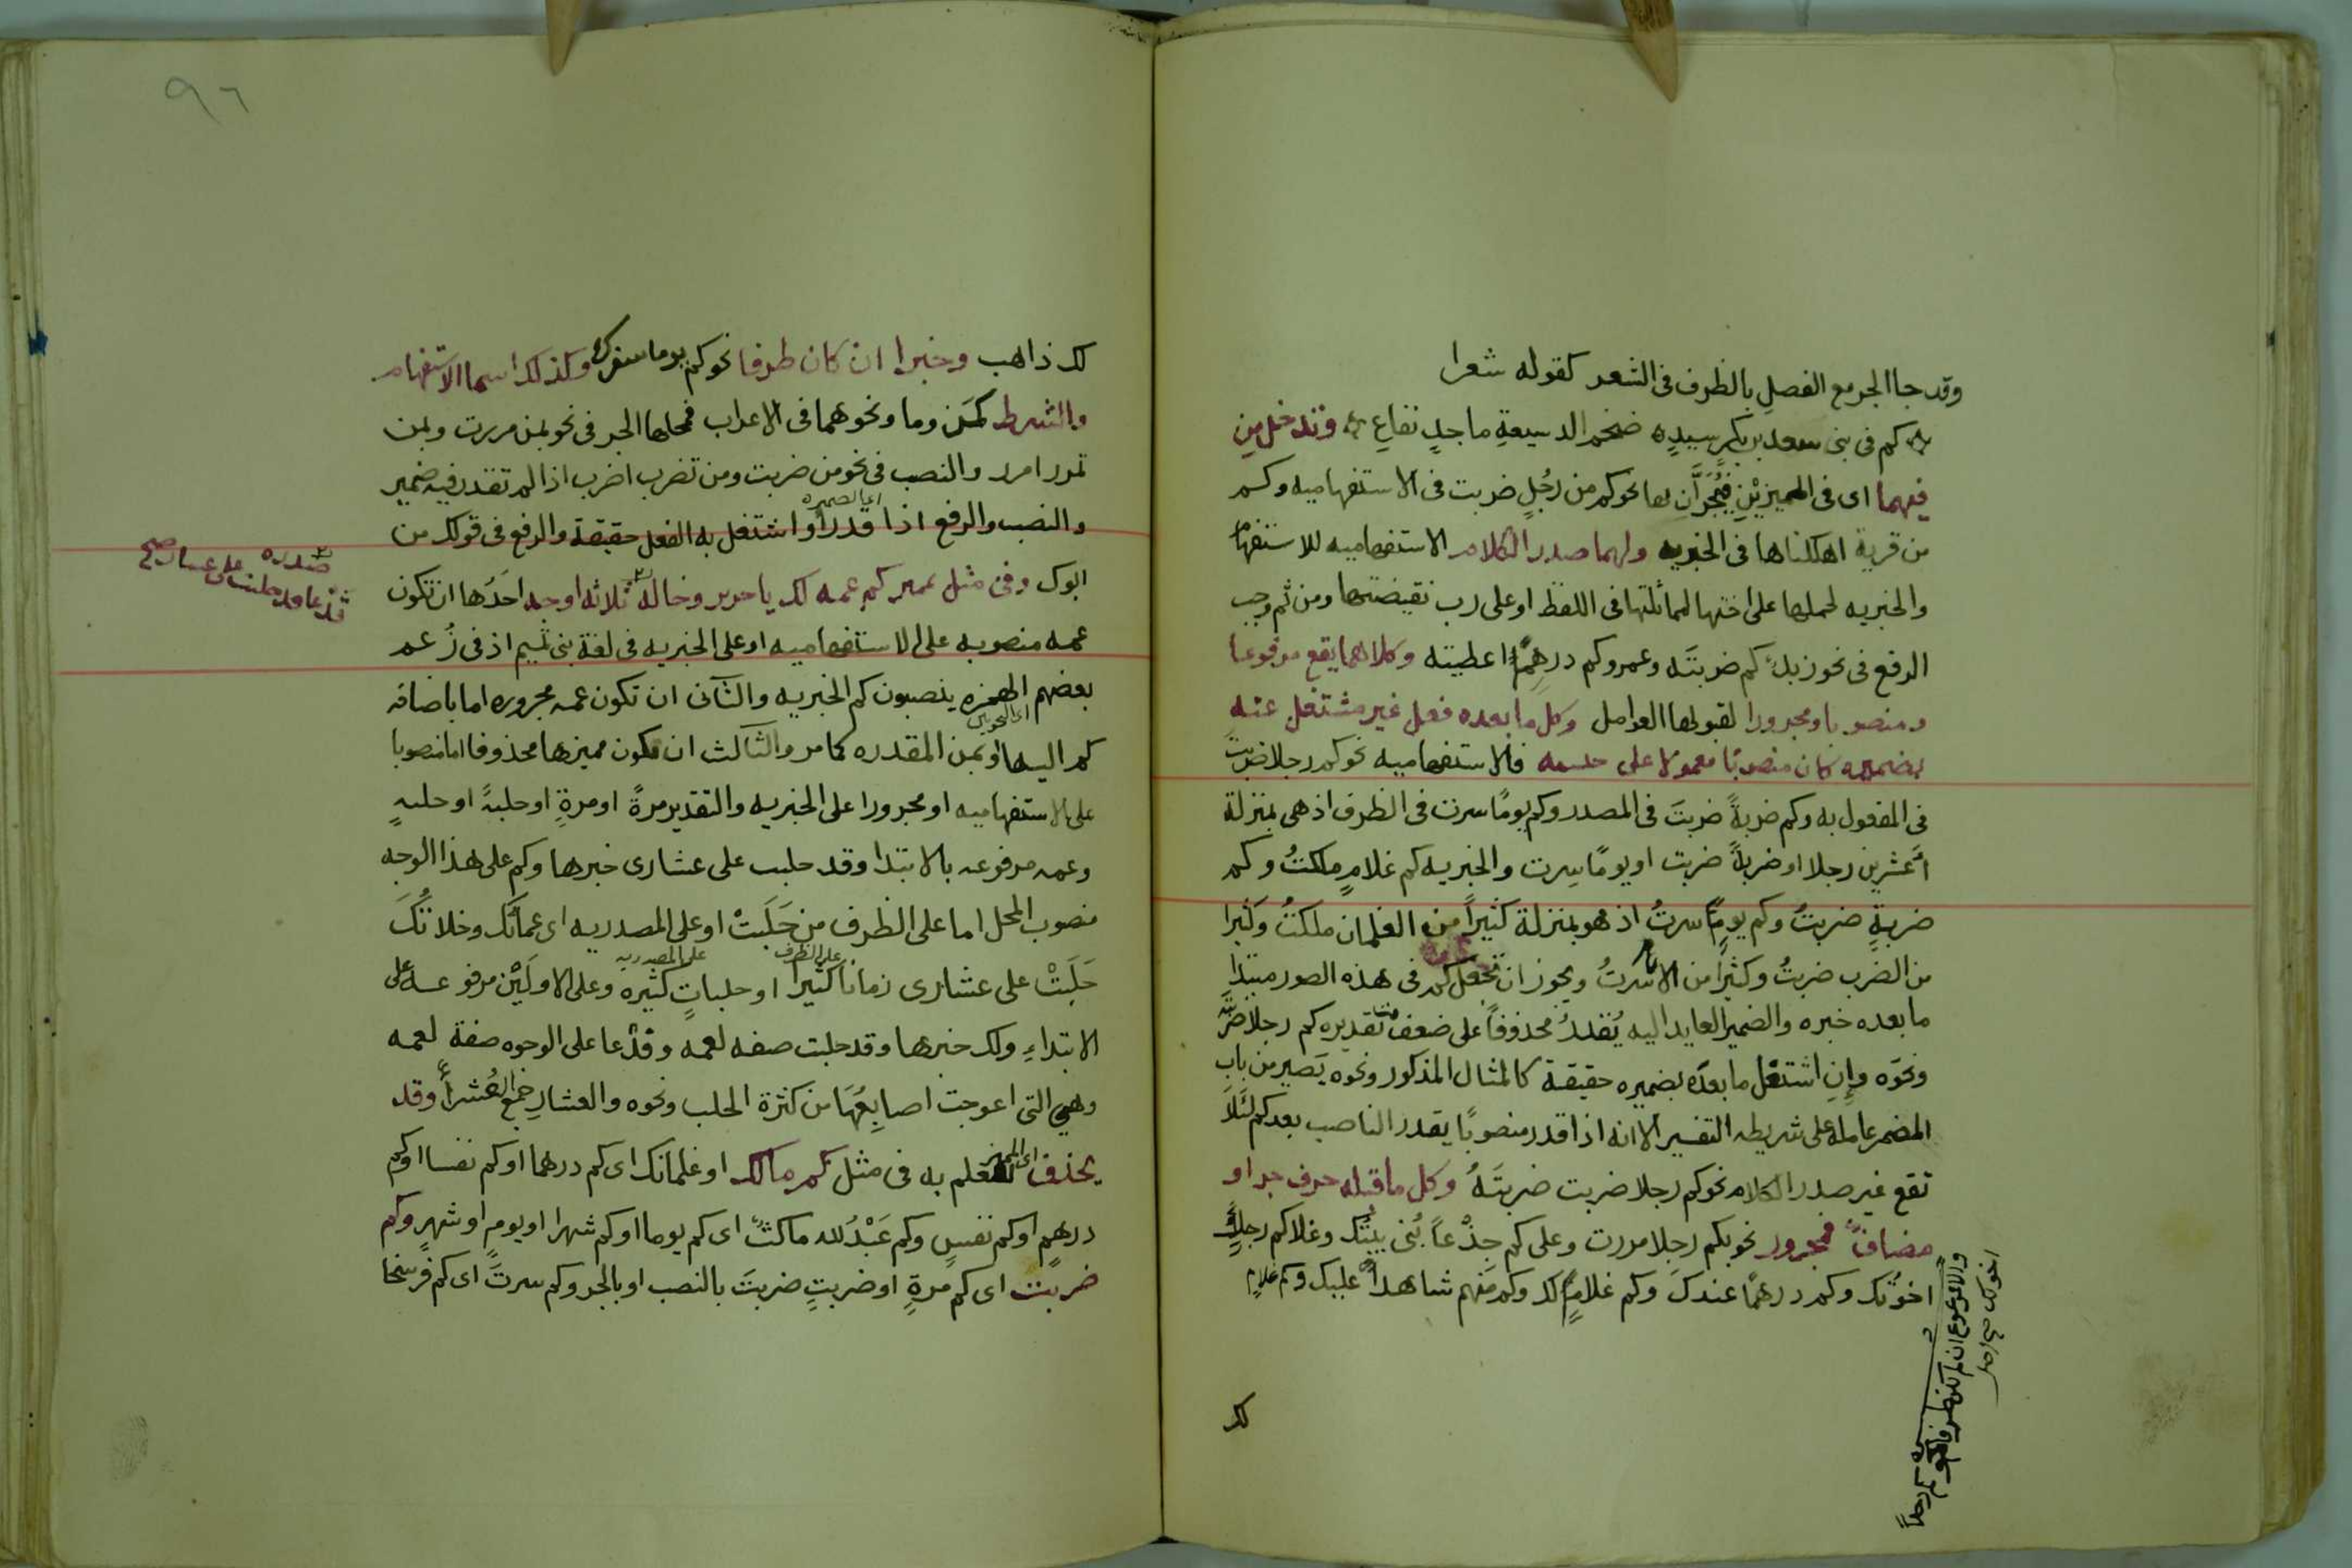 وقد جا الجر مع الفصلِ بالظرف فى الشعر كقوله شعرا
كم فى بنى سعد بن بكرٍ سيدٍ ضخمِ الدسيعةِ ماجدٍ نفاعِ وتدخل مِن
فيهما اى فى المميزيْنِ فيُجَرَّانِ بها نحو كم من رجُلٍ ضربت فى الاستفهاميه وكم
من قرية اهلكناها فى الخبريه ولهما صدر الكلام الاستفهاميه للاستفهام
والخبريه لحملها على اختها لمماثلتها فى اللفظ او على رب نقيضتها ومن ثم وجب
الرفع فى نحو زيدٌ كم ضربتَه وعمرو كم درهمًا اعطيته وكلاهما يقع مرفوعا
ومنصوبا ومجرورا لقبولها العوامل وكل ما بعده فعل غير مشتغل عنه
بضميره كان منصوبًا معمولا على حسبه فالاستفهاميه نحو كم رجلا ضربتَ
فى المفعول به وكم ضربةً ضربتَ فى المصدر وكم يومًا سرت فى الظرف اذ هى بمنزلة
أعشرين رجلا او ضربةً ضربت او يومًا سرت والخبريه كم غلامٍ ملكتُ وكم
ضربةٍ ضربتُ وكم يومٍ سرتُ اذ هو بمنزلة كثيراً من الغلمان ملكتُ وكثيرا
من الضرب ضربتُ وكثيرا من الايام سرتُ ويجوز ان تجعل كم فى هذه الصور مبتدا
ما بعده خبره والضمير العايد اليه يُقدرُ محذوفاً على ضعف تقديره كم رجلا ضربته
ونحوَه وإنِ اشتغل ما بعدَه بضميره حقيقة كالمثال المذكور ونحوه يَصير من بابِ
المضمر عامله على شريطه التفسير الا انه اذا قدر منصوبًا يقدر الناصب بعد كم لئلا
تقع غير صدر الكلام نحو كم رجلا ضربت ضربتَهُ وكل ما قبله حرف جر او
مضافٌ فمجرور نحو بكم رجلا مررت وعلى كم جِذْعاً بُنى بيتُك وغلام كم رجلٍ
اخوُك وكم درهمًا عندكَ وكم غلامٍ لك وكم منهم شاهدٌ عليك وكم غلامٍ
والا مرفوع ان لم يكن ظرفا نحو كم رجلا
اخوك صح اصل
لك
٩٦
لك ذاهب وخبرا ان كان ظرفا نحو كم يوما سفرك وكذلك اسما الاستفهام
والشرط كمَن وما ونحوهما فى الاعراب فمحلها الجر فى نحو بمن مررت وبمن
تمرر امرر والنصب فى نحو من ضربت ومن تضرب اضرب اذا لم تقدر فيه ضمير
والنصب والرفع اذا قدر او اشتغل به الفعل حقيقة والرفع فى قولك من
ابوك وفى مثل تمييز كم عمه لك يا جرير وخاله ثلاثه اوجه احَدُها ان تكون
صدره
فدعا قد حلبت على عشارى صح
عمه منصوبه على الاستفهاميه او على الخبريه فى لغة بنى تميم اذ فى زُعم
بعضهم انهم ينصبون كم الخبريه والثانى ان تكون عمه مجروره اما باضافه
اى النحويين
كم اليها او بمن المقدره كما مر والثالث ان يكون مميزها محذوفا اما منصوبا
على الاستفهاميه او مجرورا على الخبريه والتقدير مرةً او مرةٍ او حلبةً او حلبهٍ
وعمه مرفوعه بالابتدا وقد حلبت على عشارى خبرها وكم على هذا الوجه
منصوب المحل اما على الظرف من حَلَبتْ او على المصدريه اى عماتُك وخلاتُكَ
على الظرف على المصدريه
حَلَبَتْ على عشارى زمانا كثيرا او حلباتٍ كثيره وعلى الاولَيْن مرفوعه على
الابتداءِ ولك خبرها وقد حلبت صفه لعمه وفدْعا على الوجوه صفة لعمه
وهى التى اعوجت اصابِعُهَا من كثرة الحلب ونحوه والعشار جمع العُشراءُ وقد
يحذف اى المميز للعلم به فى مثل كم مالك او غلمانك اى كم درهما او كم نفسا او كم
درهمٍ او كم نفسٍ وكم عَبْدُ لله ماكثٌ اى كم يوما او كم شهرا او يومٍ او شهرٍ وكم
ضربت اى كم مرةٍ او ضربتٍ ضربتَ بالنصب او بالجر وكم سرتَ اى كم فرسخا